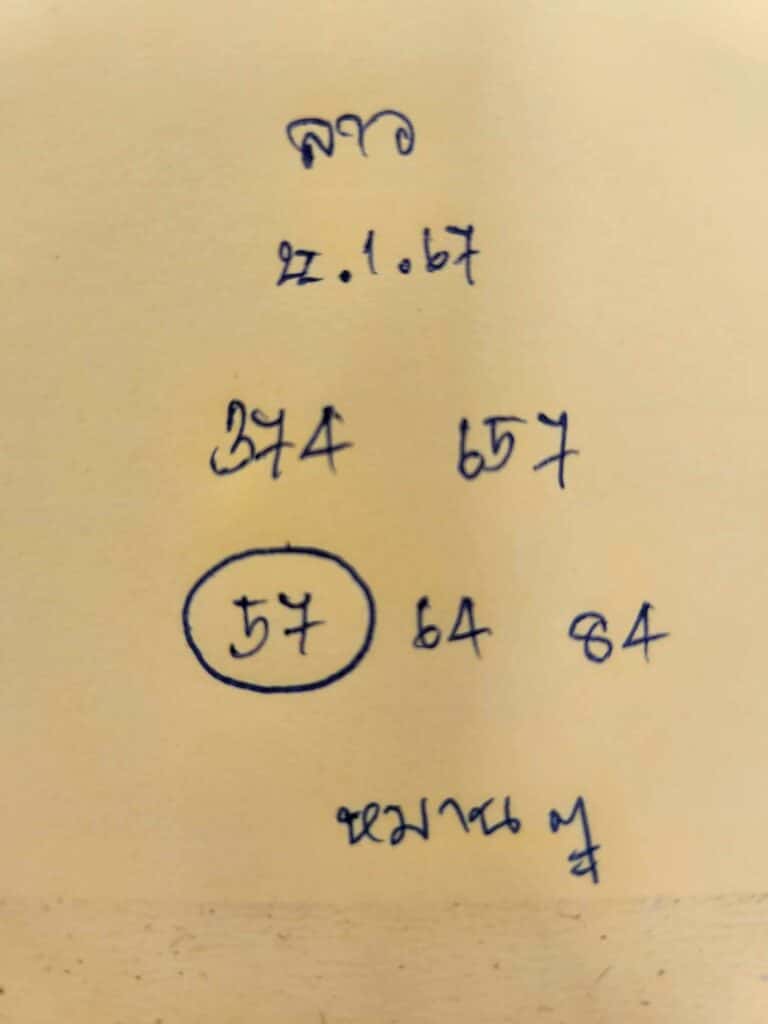 ลาว
.1.67
374 657
57 64 84
หมาน